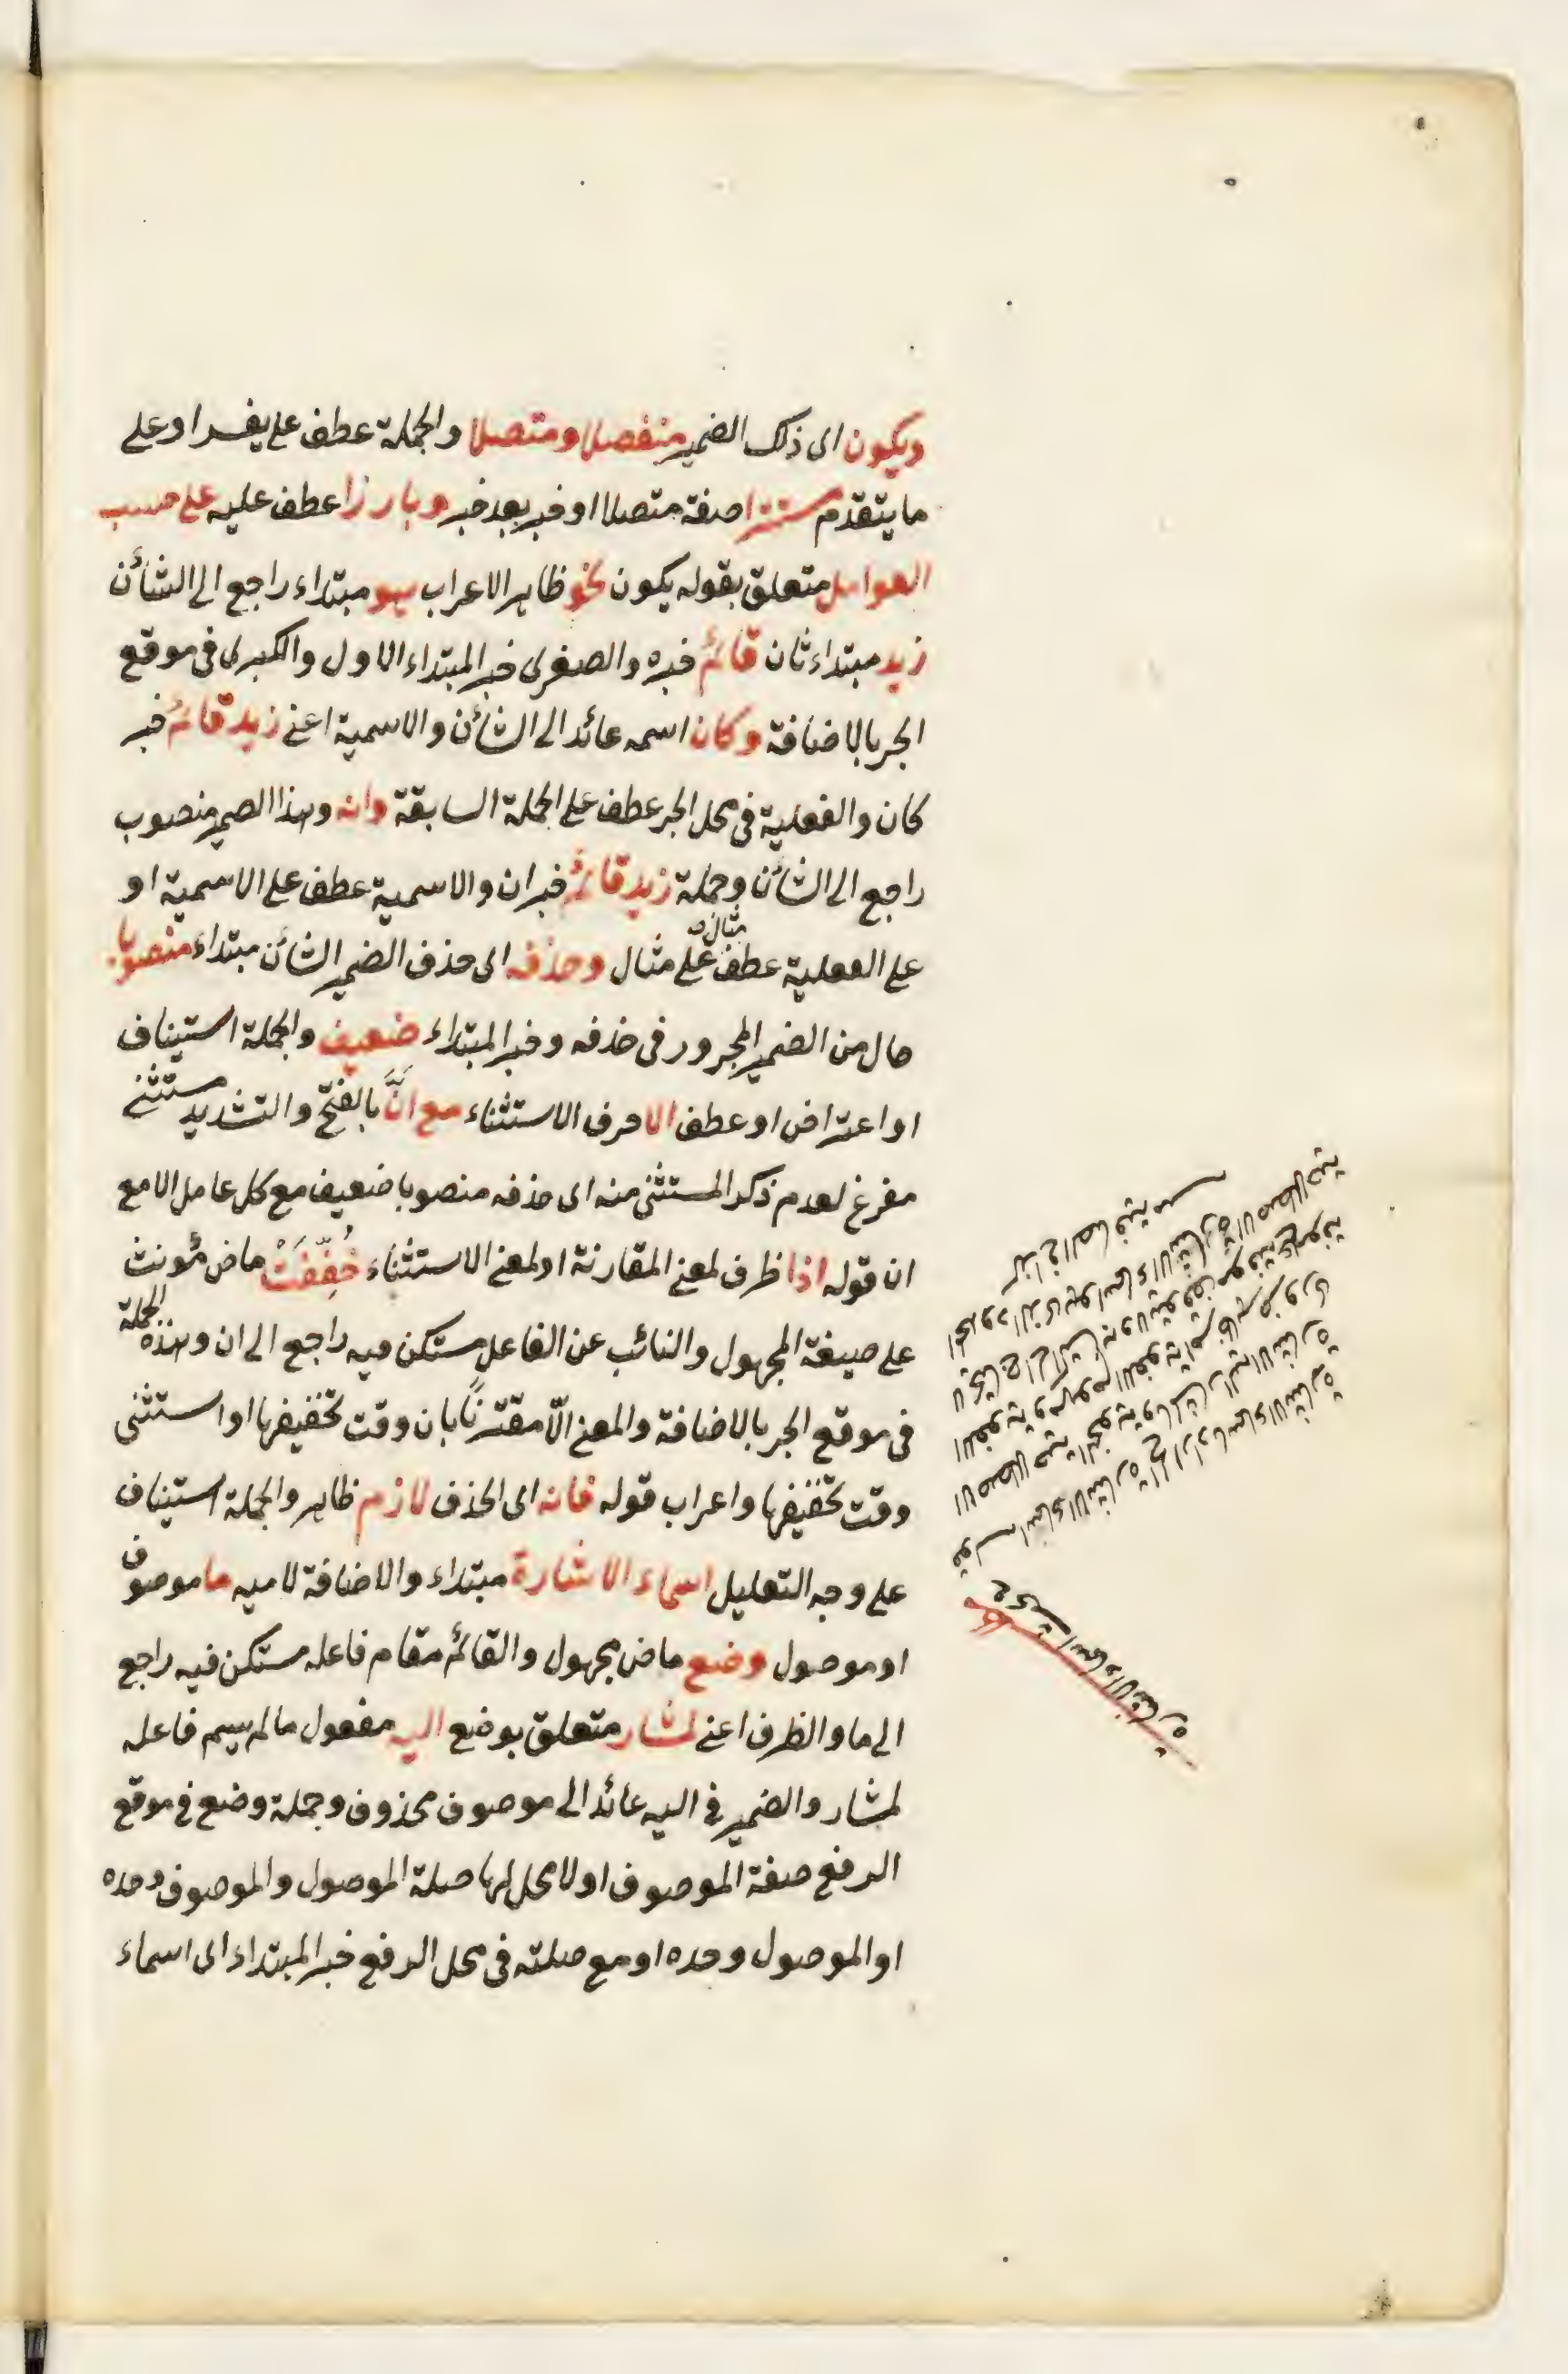 ويكون اى ذلك الضمير منفصلا ومتصلا والجملة عطف على يفسر او على
ما يتقدم مستترا صفة متصلا او خبر بعد خبر وبارزا عطف عليه على حسب
العوامل متعلق بقوله يكون نحو ظاهر الاعراب هو مبتداء راجع الى الشأن
زيد مبتداء ثان قائم خبره والصغرى خبر المبتداء الاول والكبرى فى موقع
الجر بالاضافة وكان اسمه عائد الى الشأن والاسمية اعنى زيد قائم خبر
كان والفعلية فى محل الجر عطف على الجملة السابقة وانه وهذا الضمير منصوب
راجع الى الشأن وجملة زيد قائم خبر ان والاسمية عطف على الاسمية او
على الفعلية عطف مثال على مثال وحذفه اى حذف الضمير الشأن مبتداء منصوبا
حال من الضمير المجرور فى حذفه وخبر المبتداء ضعيف والجملة استيناف
او اعتراض او عطف الا حرف الاستثناء مع انَّ بالفتح والتشديد مستثنى
مفرغ لعدم ذكر المستثنى منه اى حذفه منصوبا ضعيف مع كل عامل الا مع
ان قوله اذا ظرف لمعنى المقارنة او لمعنى الاستثناء خُفِّفَتْ ماض مؤنث
على صيغة المجهول والنائب عن الفاعل مستكن فيه راجع الى ان وهذه الجملة
فى موقع الجر بالاضافة والمعنى الّا مقترنًا بان وقت تخفيفها او استثنى
وقت تخفيفها واعراب قوله فانه اى الحذف لازم ظاهر والجملة استيناف
على وجه التعليل اسماء الاشارة مبتداء والاضافة لاميه ما موصوف
او موصول وضع ماض مجهول والقائم مقام فاعله مستكن فيه راجع
الى ما والظرف اعنى لمشار متعلق بوضع اليه مفعول ما لم يسم فاعله
لمشار والضمير فى اليه عائد الى موصوف محذوف وجملة وضع فى موقع
الرفع صفة الموصوف او لا محل لها صلة الموصول والموصوف وحده
او الموصول وحده او مع صلته فى محل الرفع خبر المبتداء اى اسماء
اسماء الاشارة
قوله اسماء الاشارة الخ المراد باسماء الاشارة